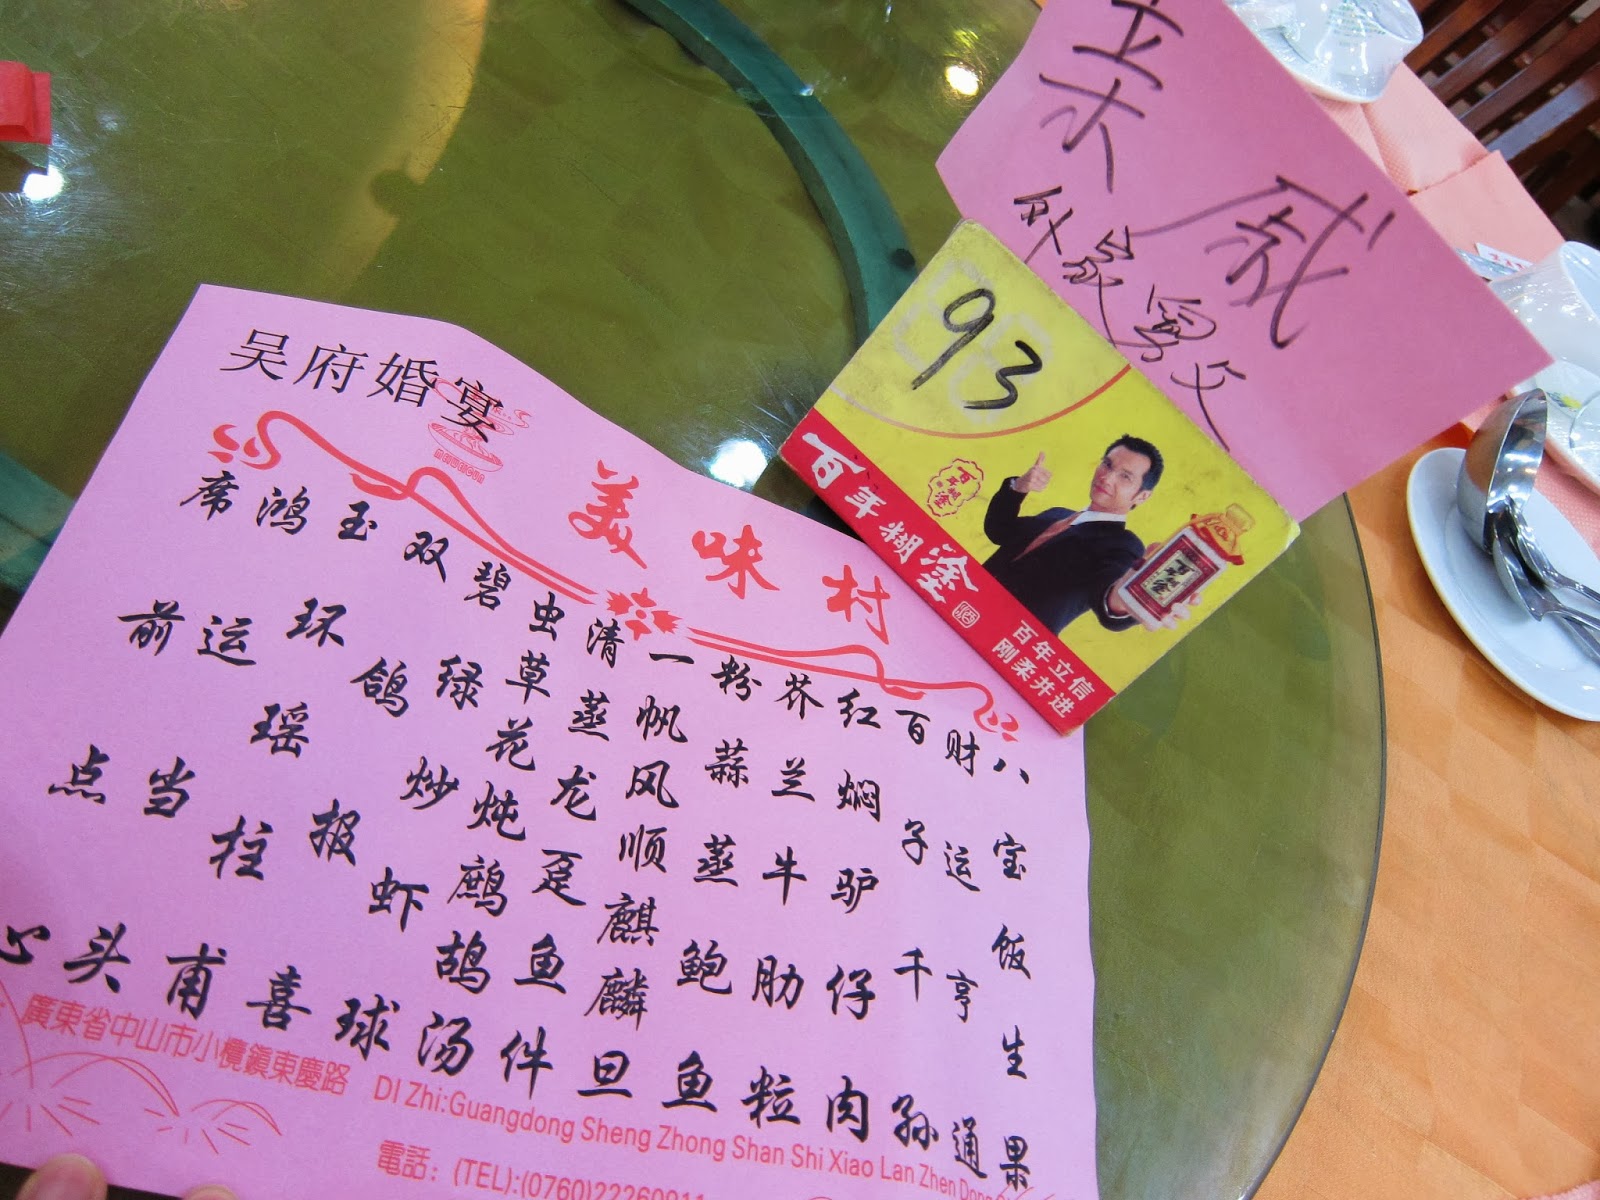 亲戚
外家舅父
93
百年糊塗
百年立信
刚柔并进
吴府婚宴
美味村
八宝饭生果
财运亨通
百子千孙
红焖驴仔肉
芥兰牛肋粒
粉蒜蒸鲍鱼
一帆风顺麒麟旦
清蒸龙趸鱼件
虫草花炖鹧鸪汤
碧绿炒虾球
双鸽报喜
玉环瑶柱甫
鸿运当头
席前点心
廣東省中山市小欖鎮東慶路 DI Zhi:Guangdong Sheng Zhong Shan Shi Xiao Lan Zhen Dong
電話：(TEL):(0760)22260911